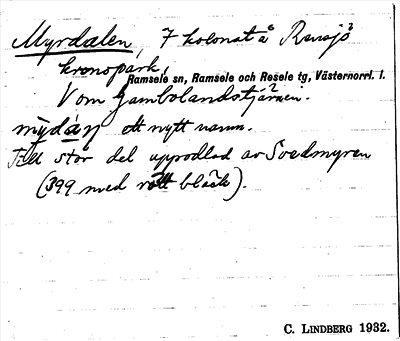 Myrdalen, 7 kolonat å Rensjö
kronopark,
Ramsele sn, Ramsele och Resele tg, Västernorrl. l.
V om Gambolandstjärnen.
mỳdáṇ ett nytt namn.
Till stor del uppodlad av Svedmyren
(399 med rött bläck).
C. LINDBERG 1932.